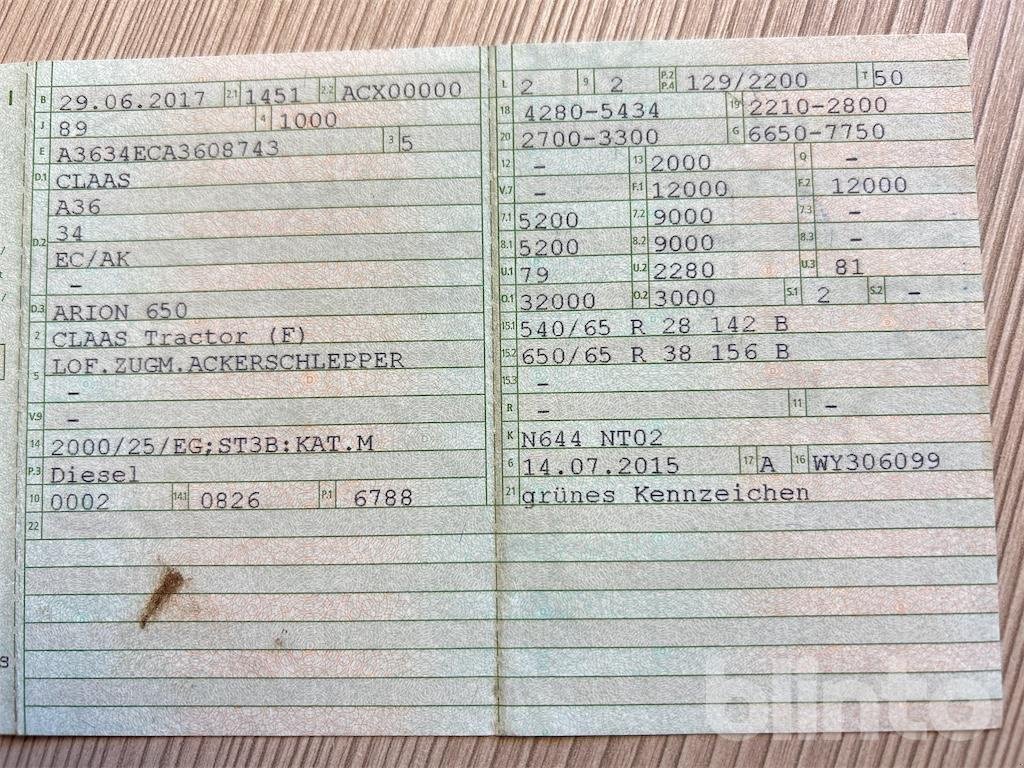 B 29.06.2017 2.1 1451 2.2 ACX00000
J 89 4 1000
E A3634ECA3608743 3 5
D.1 CLAAS
A36
D.2 34
EC/AK
–
D.3 ARION 650
2 CLAAS Tractor (F)
5 LOF.ZUGM.ACKERSCHLEPPER
–
V.9 –
14 2000/25/EG;ST3B:KAT.M
P.3 Diesel
10 0002 14.1 0826 P.1 6788
22
L 2 9 2 P.2 P.4 129/2200 T 50
18 4280-5434 19 2210-2800
20 2700-3300 G 6650-7750
12 – 13 2000 Q –
V.7 – F.1 12000 F.2 12000
7.1 5200 7.2 9000 7.3 –
8.1 5200 8.2 9000 8.3 –
U.1 79 U.2 2280 U.3 81
O.1 32000 O.2 3000 S.1 2 S.2 –
15.1 540/65 R 28 142 B
15.2 650/65 R 38 156 B
15.3 –
R – 11 –
K N644 NT02
6 14.07.2015 17 A 16 WY306099
21 grünes Kennzeichen
blinto